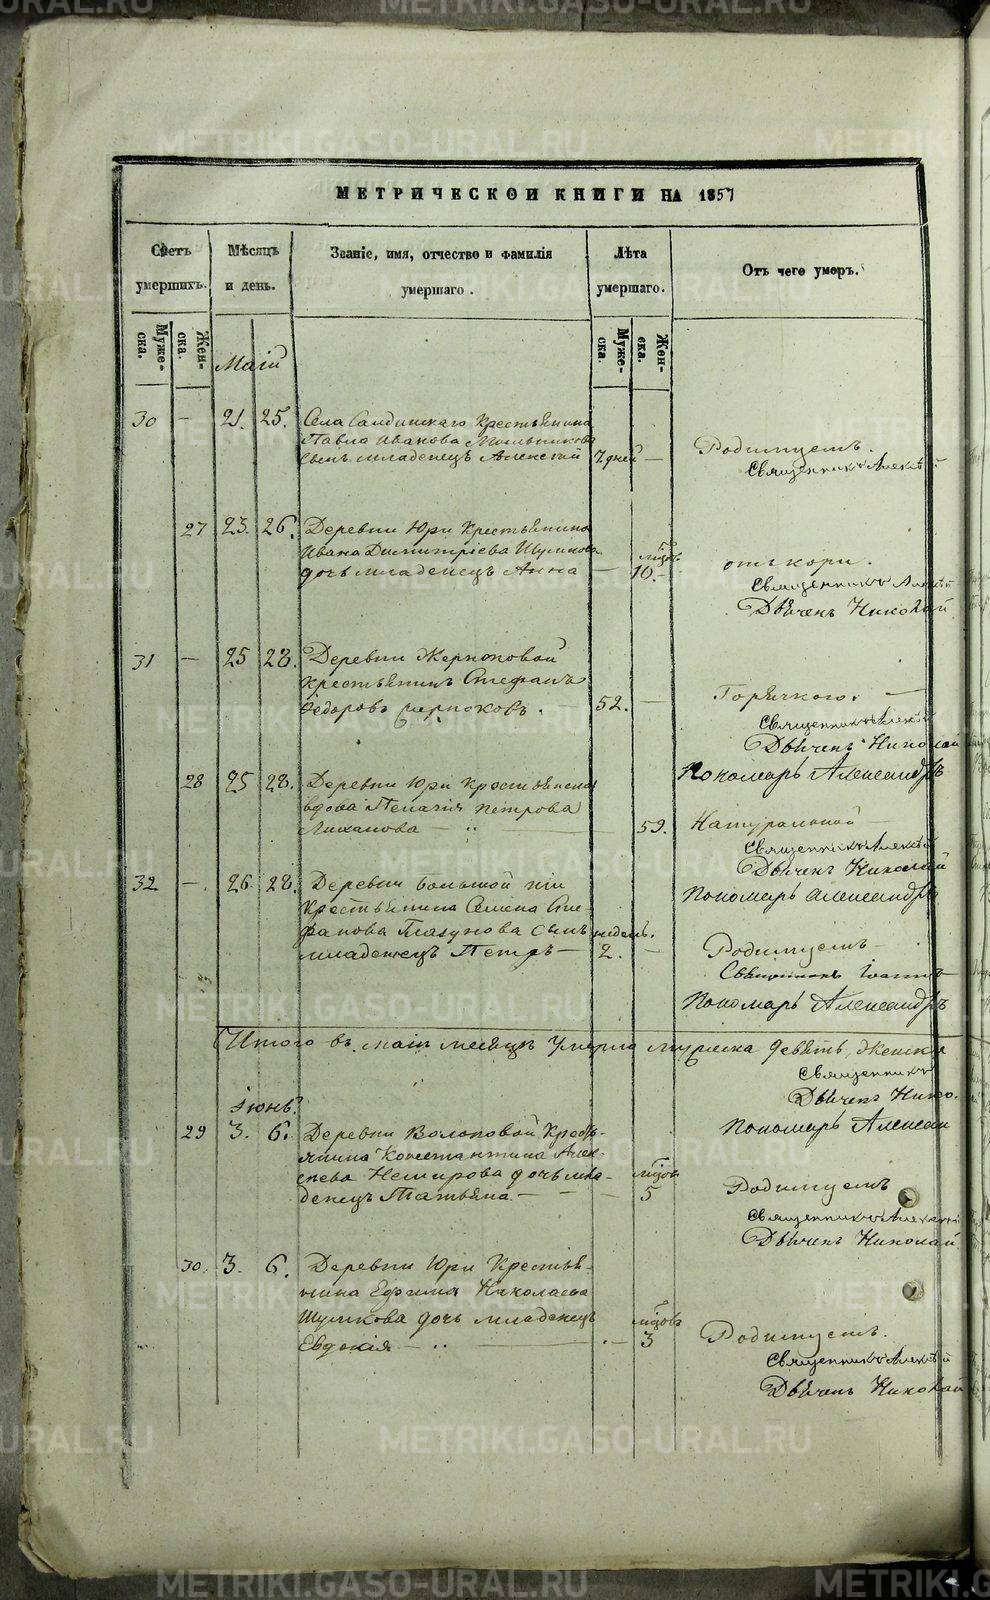 МЕТРИЧЕСКОЙ КНИГИ НА 1857
Счетъ умершихъ.
Мѣсяцъ и день.
Званіе, имя, отчество и фамилія умершаго.
Лѣта умершаго.
Отъ чего умеръ.
Муже-ска.
Жен-ска.
Муже-ска.
Жен-ска.
Маій
30 — 21. 25. Села Салдинскаго Крестьянина
Павла Иванова Мельникова
сынъ младенецъ Алексѣй 7 дней —
Родимцемъ.
Священникъ Алексѣй
27 23. 26. Деревни Юри Крестьянина
Ивана Димитріева Шумкова
дочь младенецъ Анна — мѣсцов 10. —
отъ кори.
Священникъ Алексѣй
Дьячекъ Николай
31 — 25 28. Деревни Жерноковой
крестьянинъ Стефанъ
Ѳедоровъ 52. —
Горячкою. —
Священникъ Алексѣй
Дьячекъ Николай
Пономарь Александръ
28 25 28. Деревни Юри Крестьянская
вдова Пелагія Петрова
Лиханова — 59.
Натуральной —
Священникъ Алексѣй
Дьячекъ Николай
Пономарь Александръ
32 — 26. 28. Деревни Большой
Крестьянина Семена Сте-
фанова сынъ недель.
младенецъ Петръ — 2. —
Родимцемъ —
Священникъ Іоаннъ —
Пономарь Александръ
Итого въ маіи месяцѣ умерло мужеска девять, женска
Священникъ
Дьячекъ Нико.
Пономарь Алексан
Іюнь.
29 3. 6. Деревни Волоковой Кресть-
янина Константина Алек-
сѣева Немирова дочь мла- мѣсцов
денецъ Татьяна — — — 5
Родимцемъ
Священникъ Алексѣй
Дьячекъ Николай
30. 3. 6. Деревни Юри Крестья-
нина Ефима Николаева
Шумкова дочь младенецъ мѣсцовъ
Евдокія — — 3
Родимцемъ.
Священникъ Алексѣй
Дьячекъ Николай
METRIKI.GASO-URAL.RU